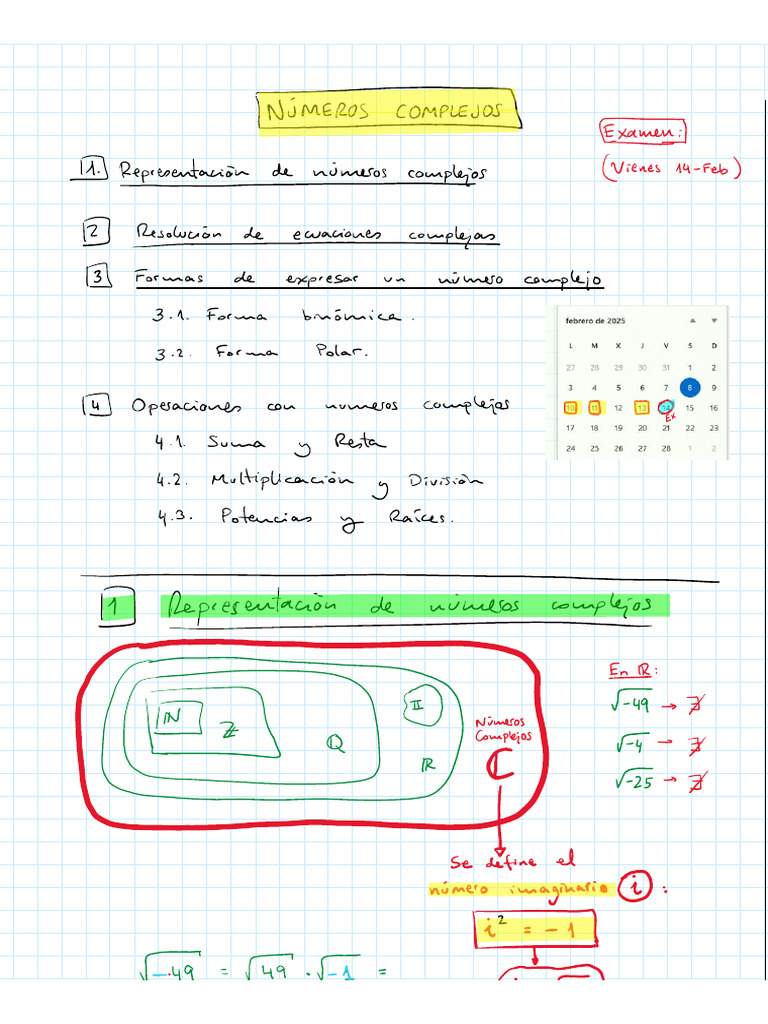 NÚMEROS COMPLEJOS
Examen:
(Vienes 14-Feb)
1. Representación de números complejos
2 Resolución de ecuaciones complejas
3 Formas de expresar un número complejo
3.1. Forma binómica.
3.2. Forma Polar.
febrero de 2025
L M X J V S D
27 28 29 30 31 1 2
3 4 5 6 7 8 9
10 11 12 13 14 15 16
Ex
17 18 19 20 21 22 23
24 25 26 27 28 1 2
4 Operaciones con numeros complejos
4.1. Suma y Resta
4.2. Multiplicación y División
4.3. Potencias y Raíces.
1 Representación de números complejos
IN
Z
Q
II
IR
Números
Complejos
C
En IR:
√-49 → ∄
√-4 → ∄
√-25 → ∄
Se define el
número imaginario i :
i² = -1
√-49 = √49 · √-1 =